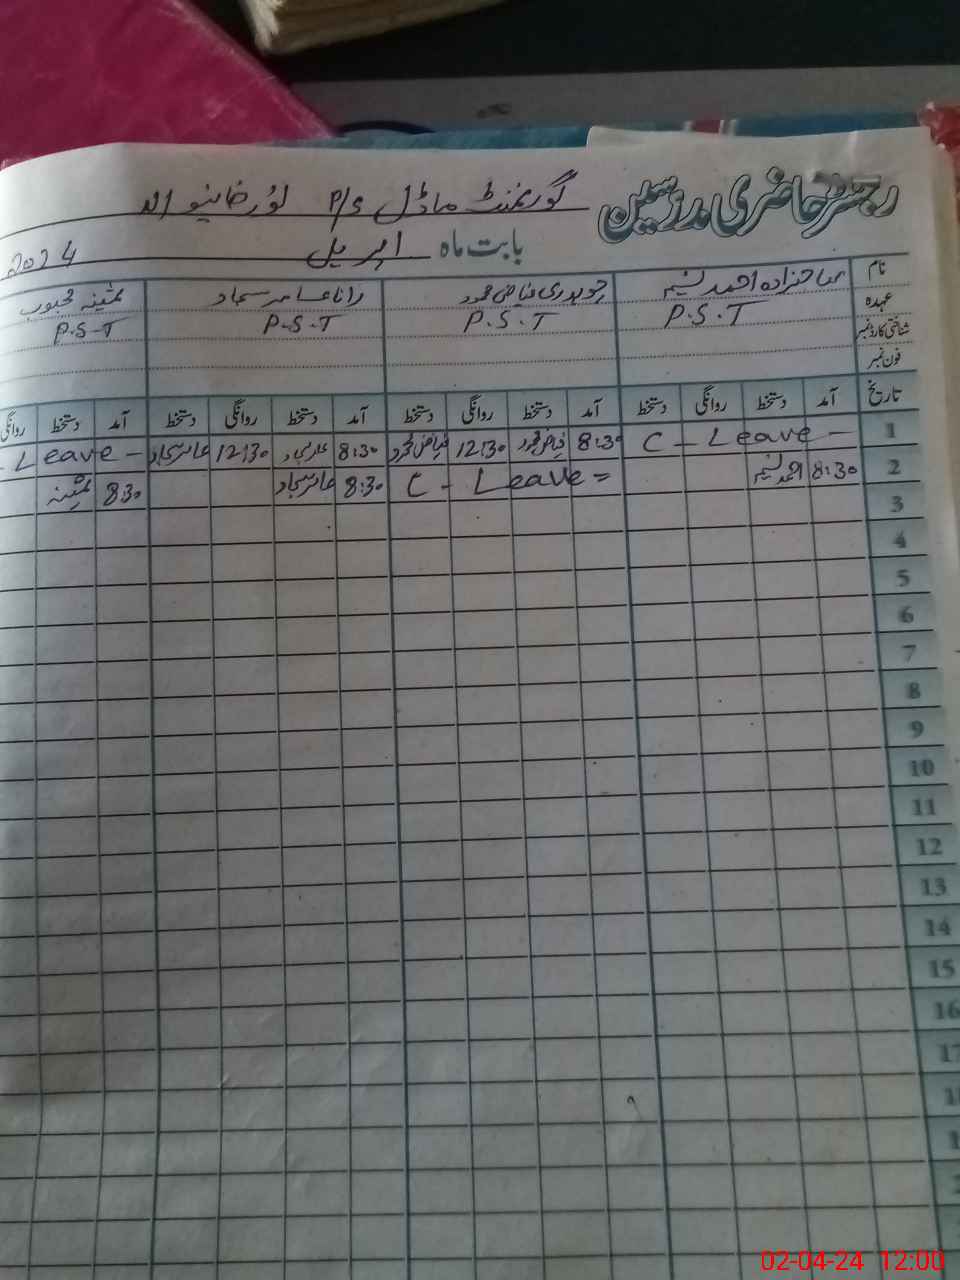 رجسٹر حاضری مدرسین گورنمنٹ ماڈل P/S
بابت ماہ اپریل 2024
نام صاحبزادہ احمد نسیم چوہدری فیاض محمود رانا عامر سجاد ثمینہ محبوب
عہدہ P.S.T P.S.T P.S.T P.S.T
شناختی کارڈ نمبر
فون نمبر
تاریخ آمد دستخط روانگی دستخط آمد دستخط روانگی دستخط آمد دستخط روانگی دستخط آمد دستخط روانگی
1 C - Leave - 8:30 فیاض محمود 12:30 فیاض محمود 8:30 عامر سجاد 12:30 عامر سجاد - Leave -
2 8:30 احمد نسیم C - Leave = 8:30 عامر سجاد 8:30 ثمینہ
3
4
5
6
7
8
9
10
11
12
13
14
15
16
17
02-04-24 12:00